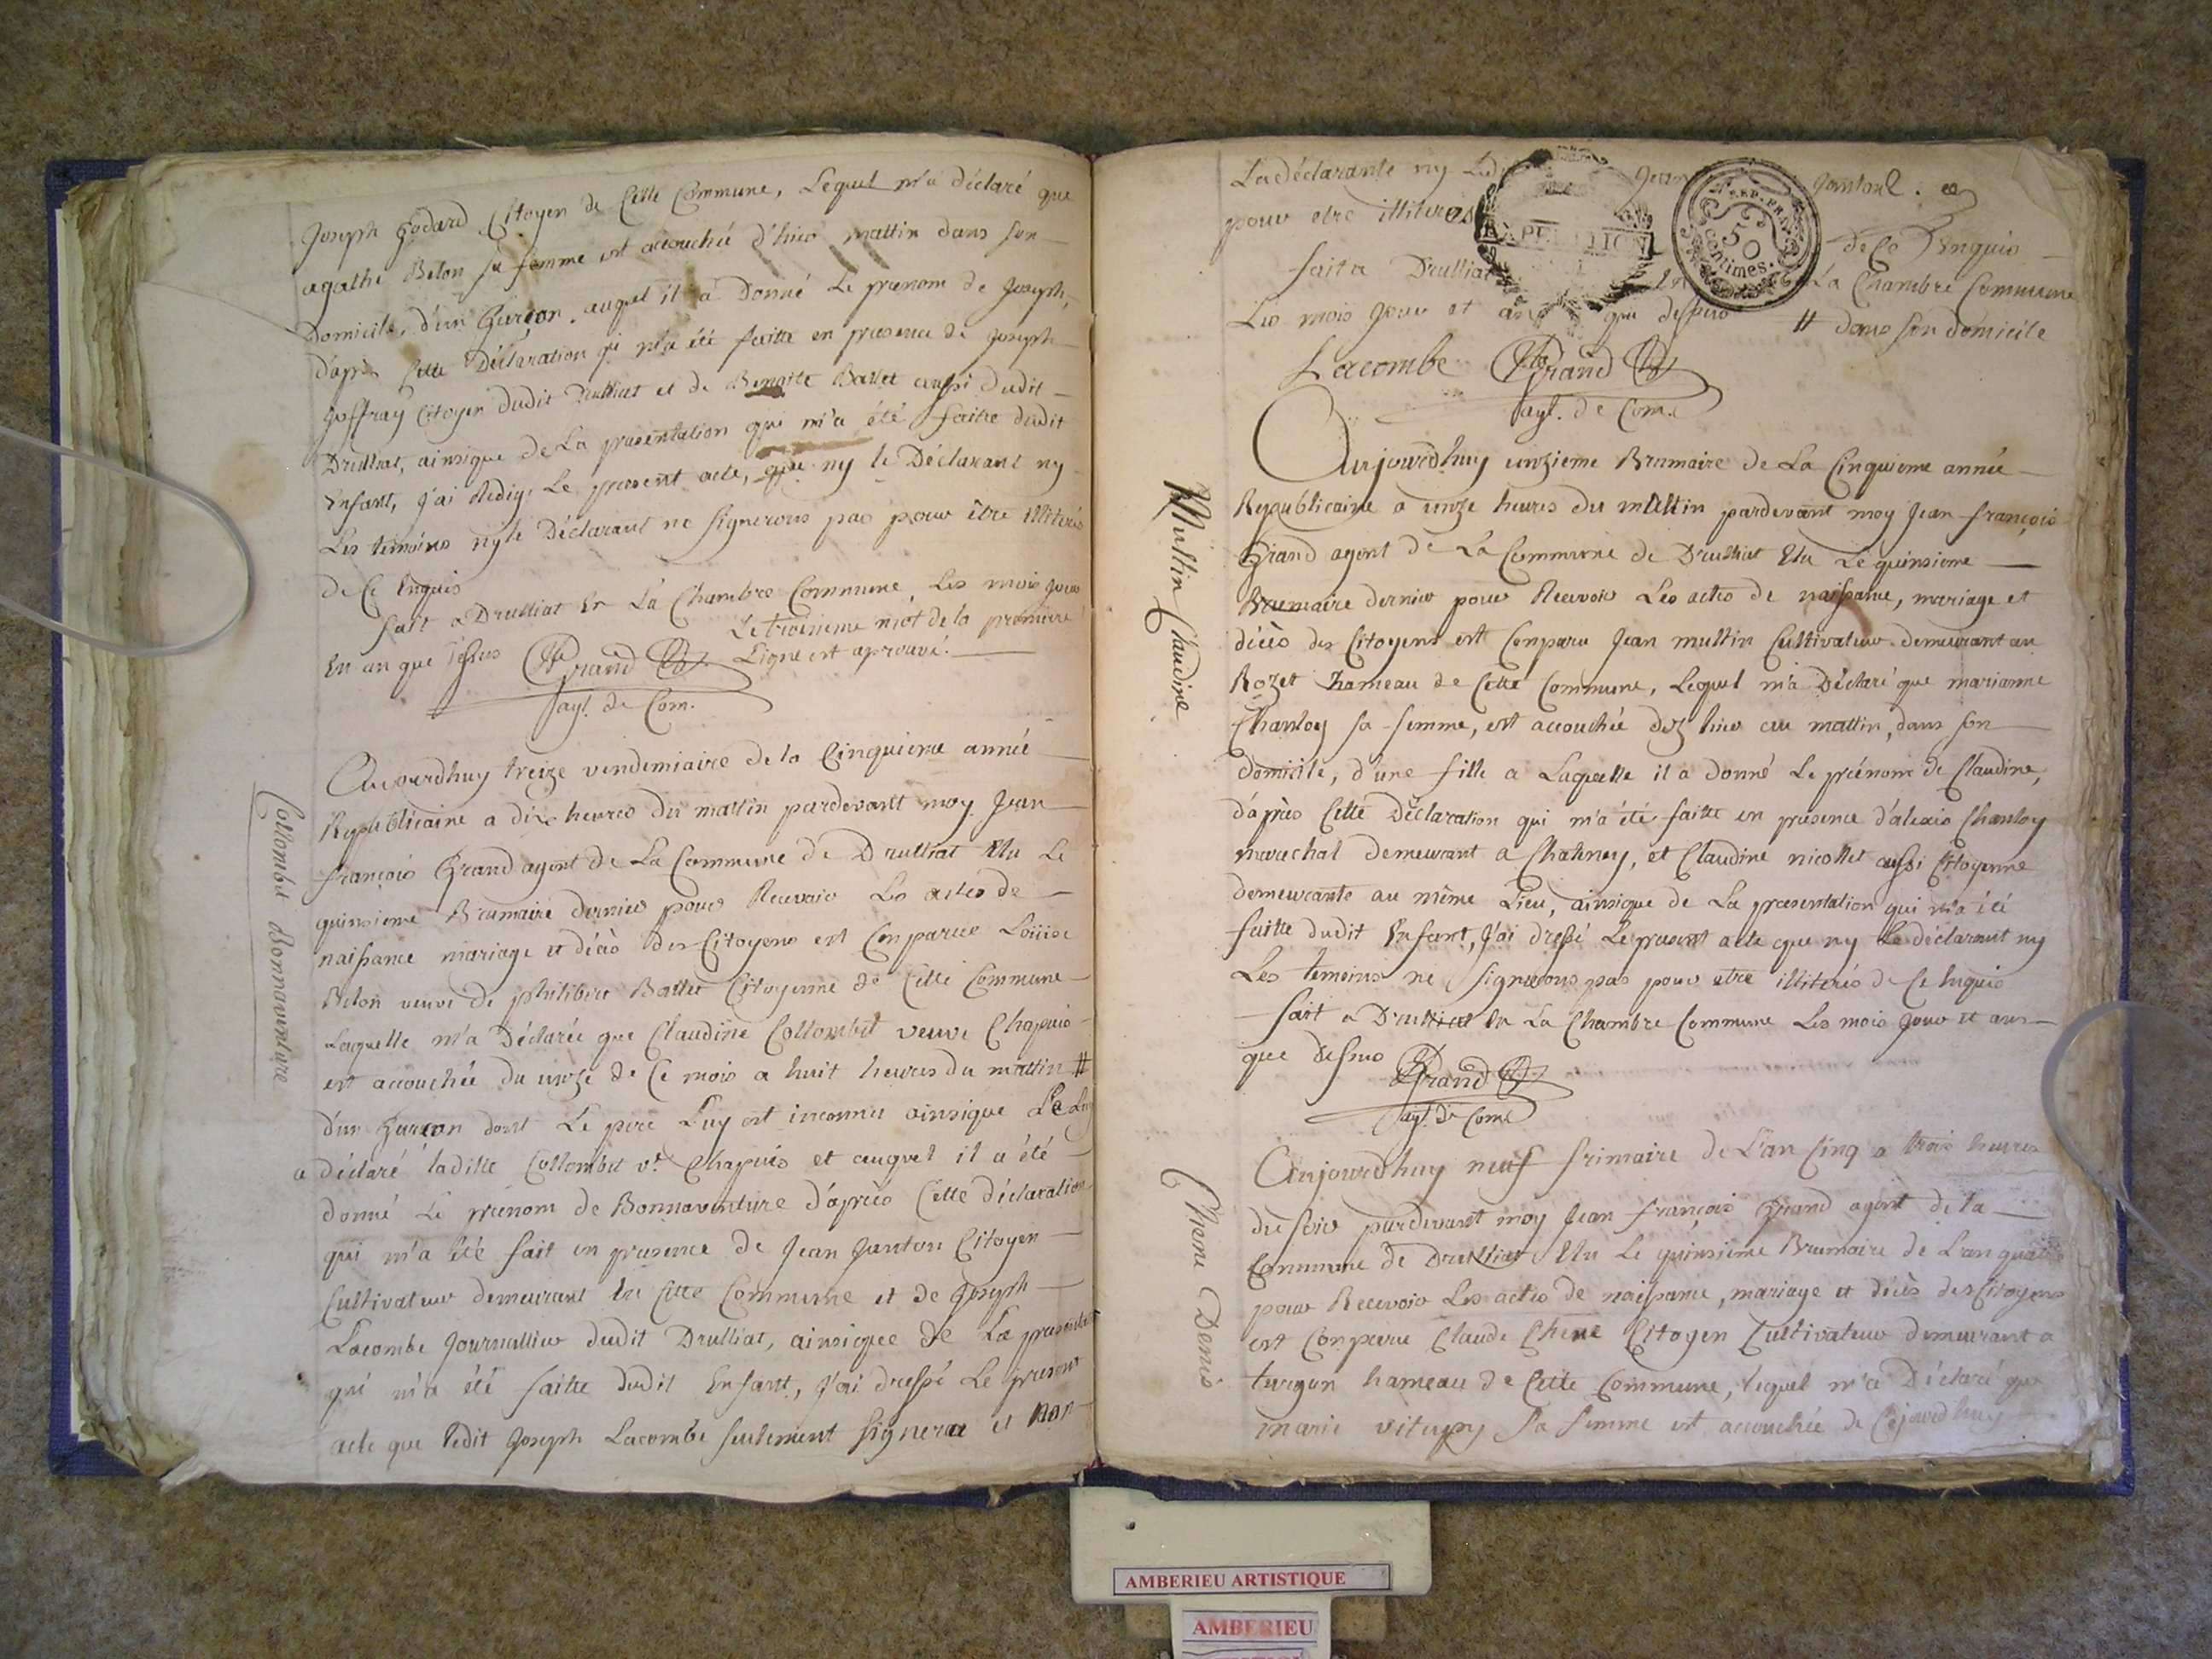 Joseph Godard Citoyen de Cette Commune, Lequel m'a déclaré que
agathe Belon sa femme est accouchée d'hier mattin dans son
Domicile, d'un Garçon, auquel il a Donné Le prenom de Joseph,
d'après Cette Déclaration qi m'a été faitte en presence de Joseph
Joffray Citoyen dudit Drulliat et de Benoite Ballet aussi dudit
Drulliat, ainsique de La presentation qui m'a été faitte dudit
Enfant, j'ai Redigé Le present acte, que ny le Déclarant ny
Les temoins ny le Déclarant ne signerons pas pour être illiterés
de Ce Enquis
fait a Drulliat En La Chambre Commune, Les mois jour
Le troisieme mot de la premiere
En an que dessus Grand Ligne est aprouvé.
agt. de Com.
Collombet Bonnaventure
Aujourdhuy treize vendemiaire de la Cinquieme année
Republicaine a dix heures du mattin pardevant moy Jean
françois Grand agent de La Commune de Drulliat Elu Le
quinsieme Brumaire dernier pour Recevoir Les actes de
naissance mariage et décès des Citoyens est Comparue Loüise
Belon veuve de philibert Ballet Citoyenne de Cette Commune
Laquelle m'a Déclarée que Claudine Collombet veuve Chapuis
est accouchée du onze de Ce mois a huit heures du mattin #
d'un Garçon dont Le pere Luy est inconnu ainsique Le Luy
a déclaré laditte Collombet ve. Chapuis et auquel il a été
donné Le prenom de Bonnaventure d'après Cette déclaration
qui m'a été fait en presence de Jean Janton Citoyen
Cultivateur demeurant En Cette Commune et de Joseph
Lacombe Journallier dudit Drulliat, ainsique de La presentation
qui m'a été faitte dudit Enfant, j'ai dressé Le present
acte que Ledit Joseph Lacombe seulement signera et non
La déclarante ny Ledit Jean Janton
pour etre illiterés de Ce Enquis
fait a Drulliat En La Chambre Commune
Les mois jour et an que dessus # dans son domicile
EXPEDITION
REP. FRA.
50
centimes.
Lacombe Grand
agt. de Com.
Muttin Claudine
Aujourdhuy onzieme Brumaire de La Cinquieme année
Republicaine a onze heures du mattin pardevant moy Jean françois
Grand agent de La Commune de Drulliat Elu Le quinsieme
Brumaire dernier pour Recevoir Les actes de naissance, mariage et
décès des Citoyens est Comparu Jean muttin Cultivateur demeurant au
Rozet hameau de Cette Commune, Lequel m'a Déclaré que marianne
Chanloy sa femme, est accouchée dez hier au mattin, dans son
domicile, d'une fille a Laquelle il a donné Le prénom de Claudine,
d'après Cette Déclaration qui m'a été faitte en presence d'alexis Chanloy
marechal demeurant a Chahney, et Claudine nicollet aussi Citoyenne
demeurante au même Lieu, ainsique de La presentation qui m'a été
faitte dudit Enfant, j'ai dressé Le present acte que ny Le déclarant ny
Les temoins ne signerons pas pour etre illiterés de Ce Enquis
fait a Drulliat En La Chambre Commune Les mois jour et an
que dessus Grand
agt. de Com.
Chene Denis
Aujourdhuy neuf frimaire de L'an Cinq a trois heures
du soir pardevant moy Jean françois Grand agent de la
Commune de Drulliat Elu Le quinsieme Brumaire de L'an quatre
pour Recevoir Les actes de naissance, mariage et décès des Citoyens
est Comparu Claude Chene Citoyen Cultivateur demeurant a
turgon hameau de Cette Commune, lequel m'a Déclaré que
marie vitupy sa femme est accouchée de Cejourdhuy
AMBERIEU ARTISTIQUE
AMBERIEU